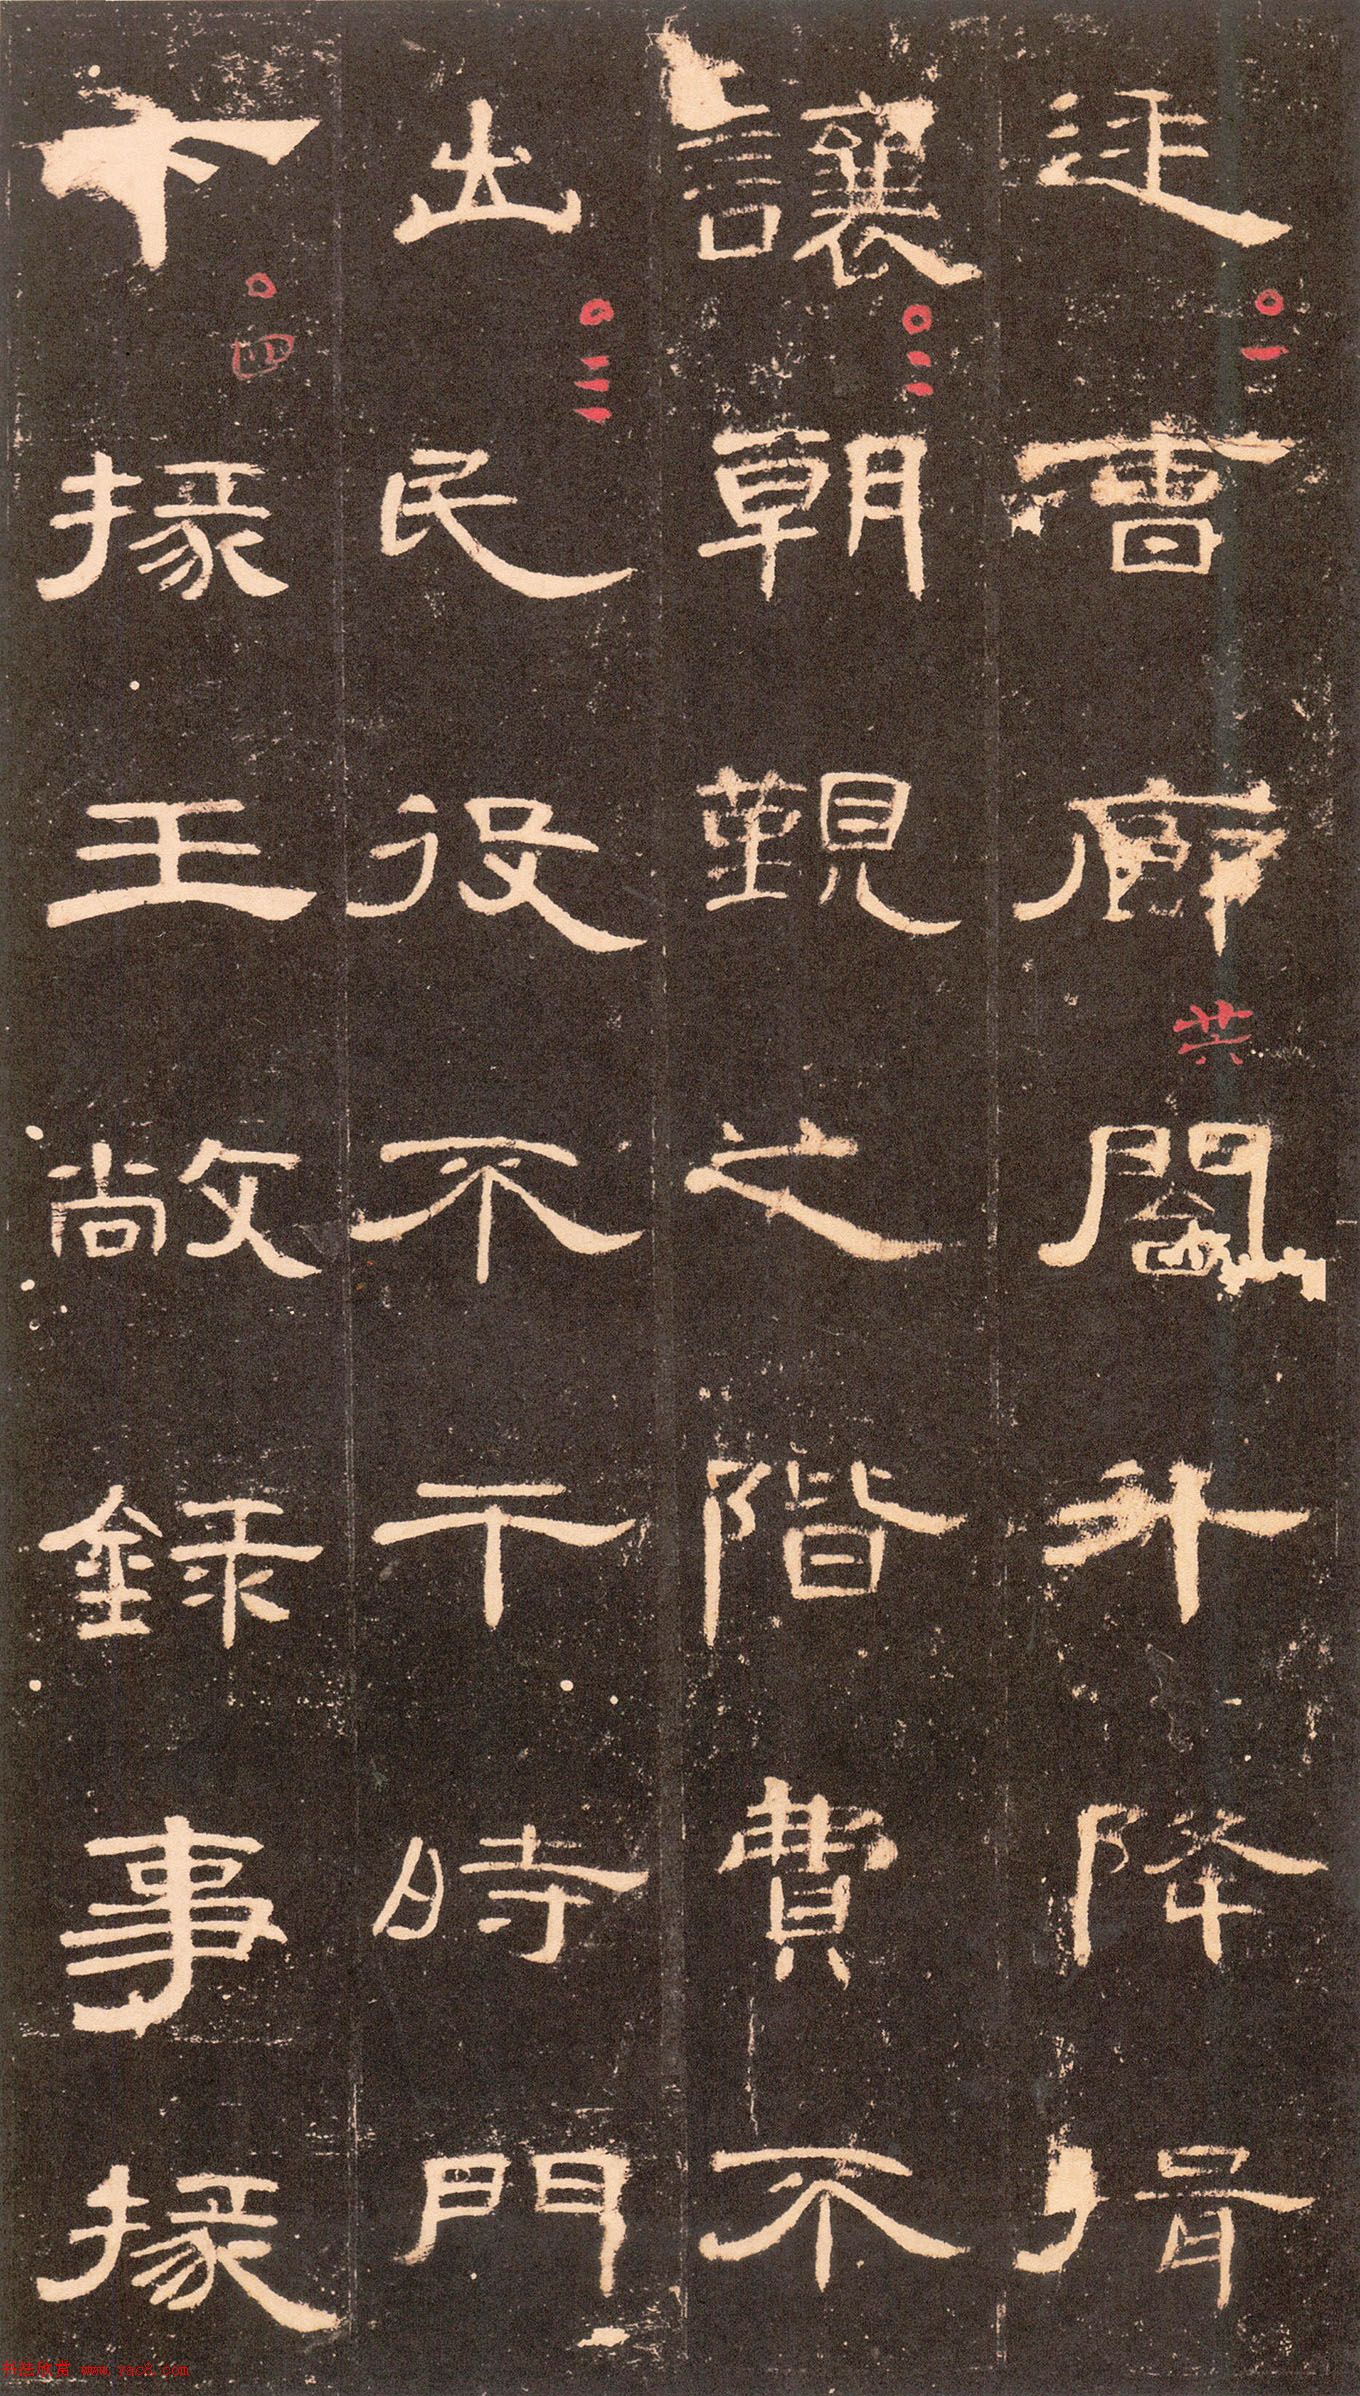 廷曹廊閣升降揖
讓朝覲之階費不
出民役不干時門
下掾王敞錄事掾
〇一
〇二
〇三
〇四
书法欣赏 www.yac8.com